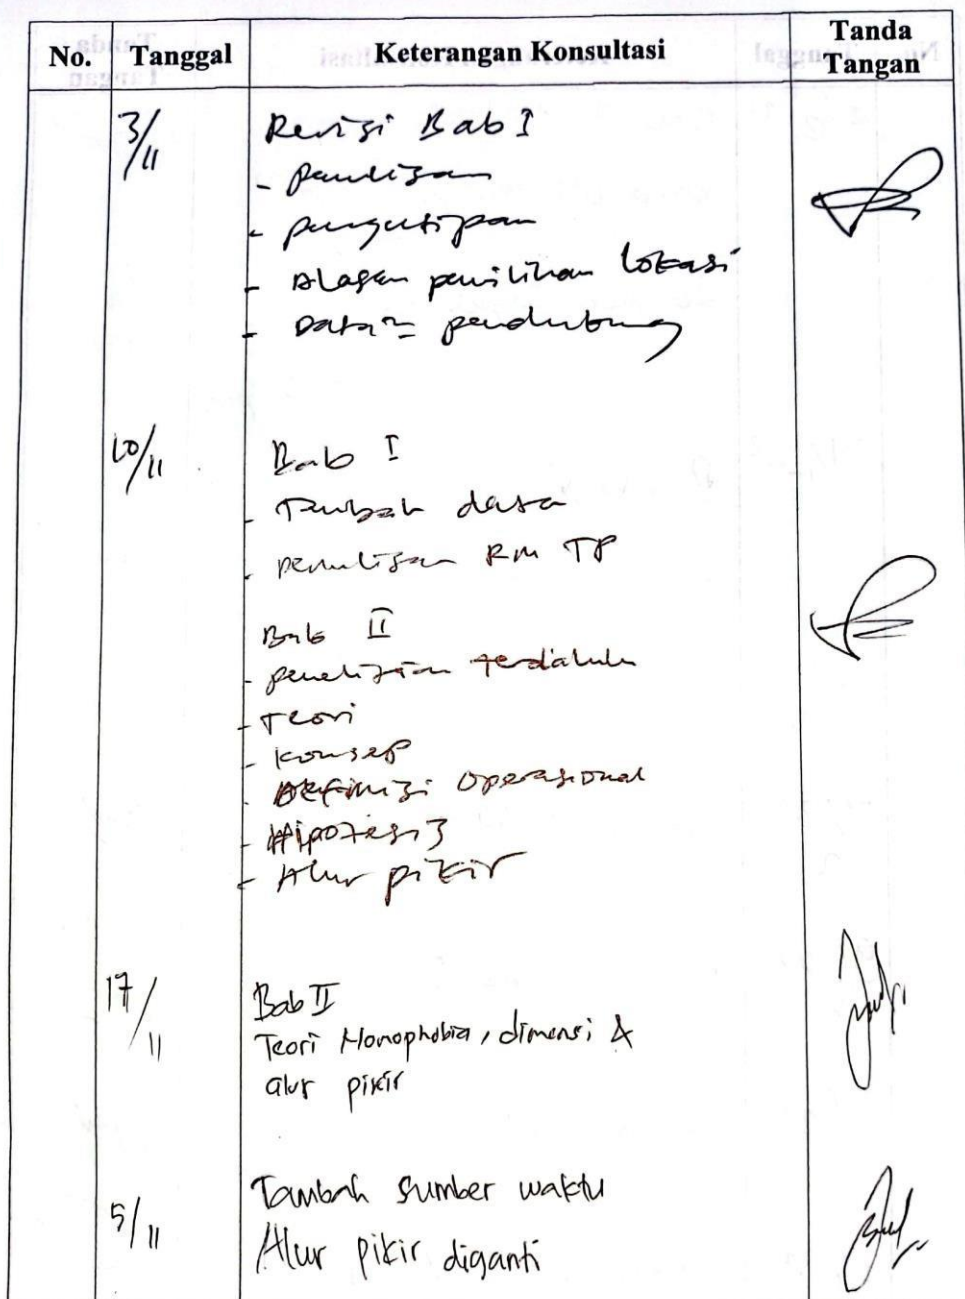 No. Tanggal Keterangan Konsultasi Tanda Tangan
3/11 Revisi Bab I
- penulisan
- pengutipan
- Alasan pemilihan lokasi
- Data2 pendukung
10/11 Bab I
- Tambah data
- penulisan RM TP
Bab II
- penelitian terdahulu
- Teori
- konsep
- Definisi operasional
- Hipotesis
- Alur pikir
17/11 Bab II
Teori Nomophobia, dimensi &
alur pikir
5/11 Tambah sumber waktu
Alur pikir diganti